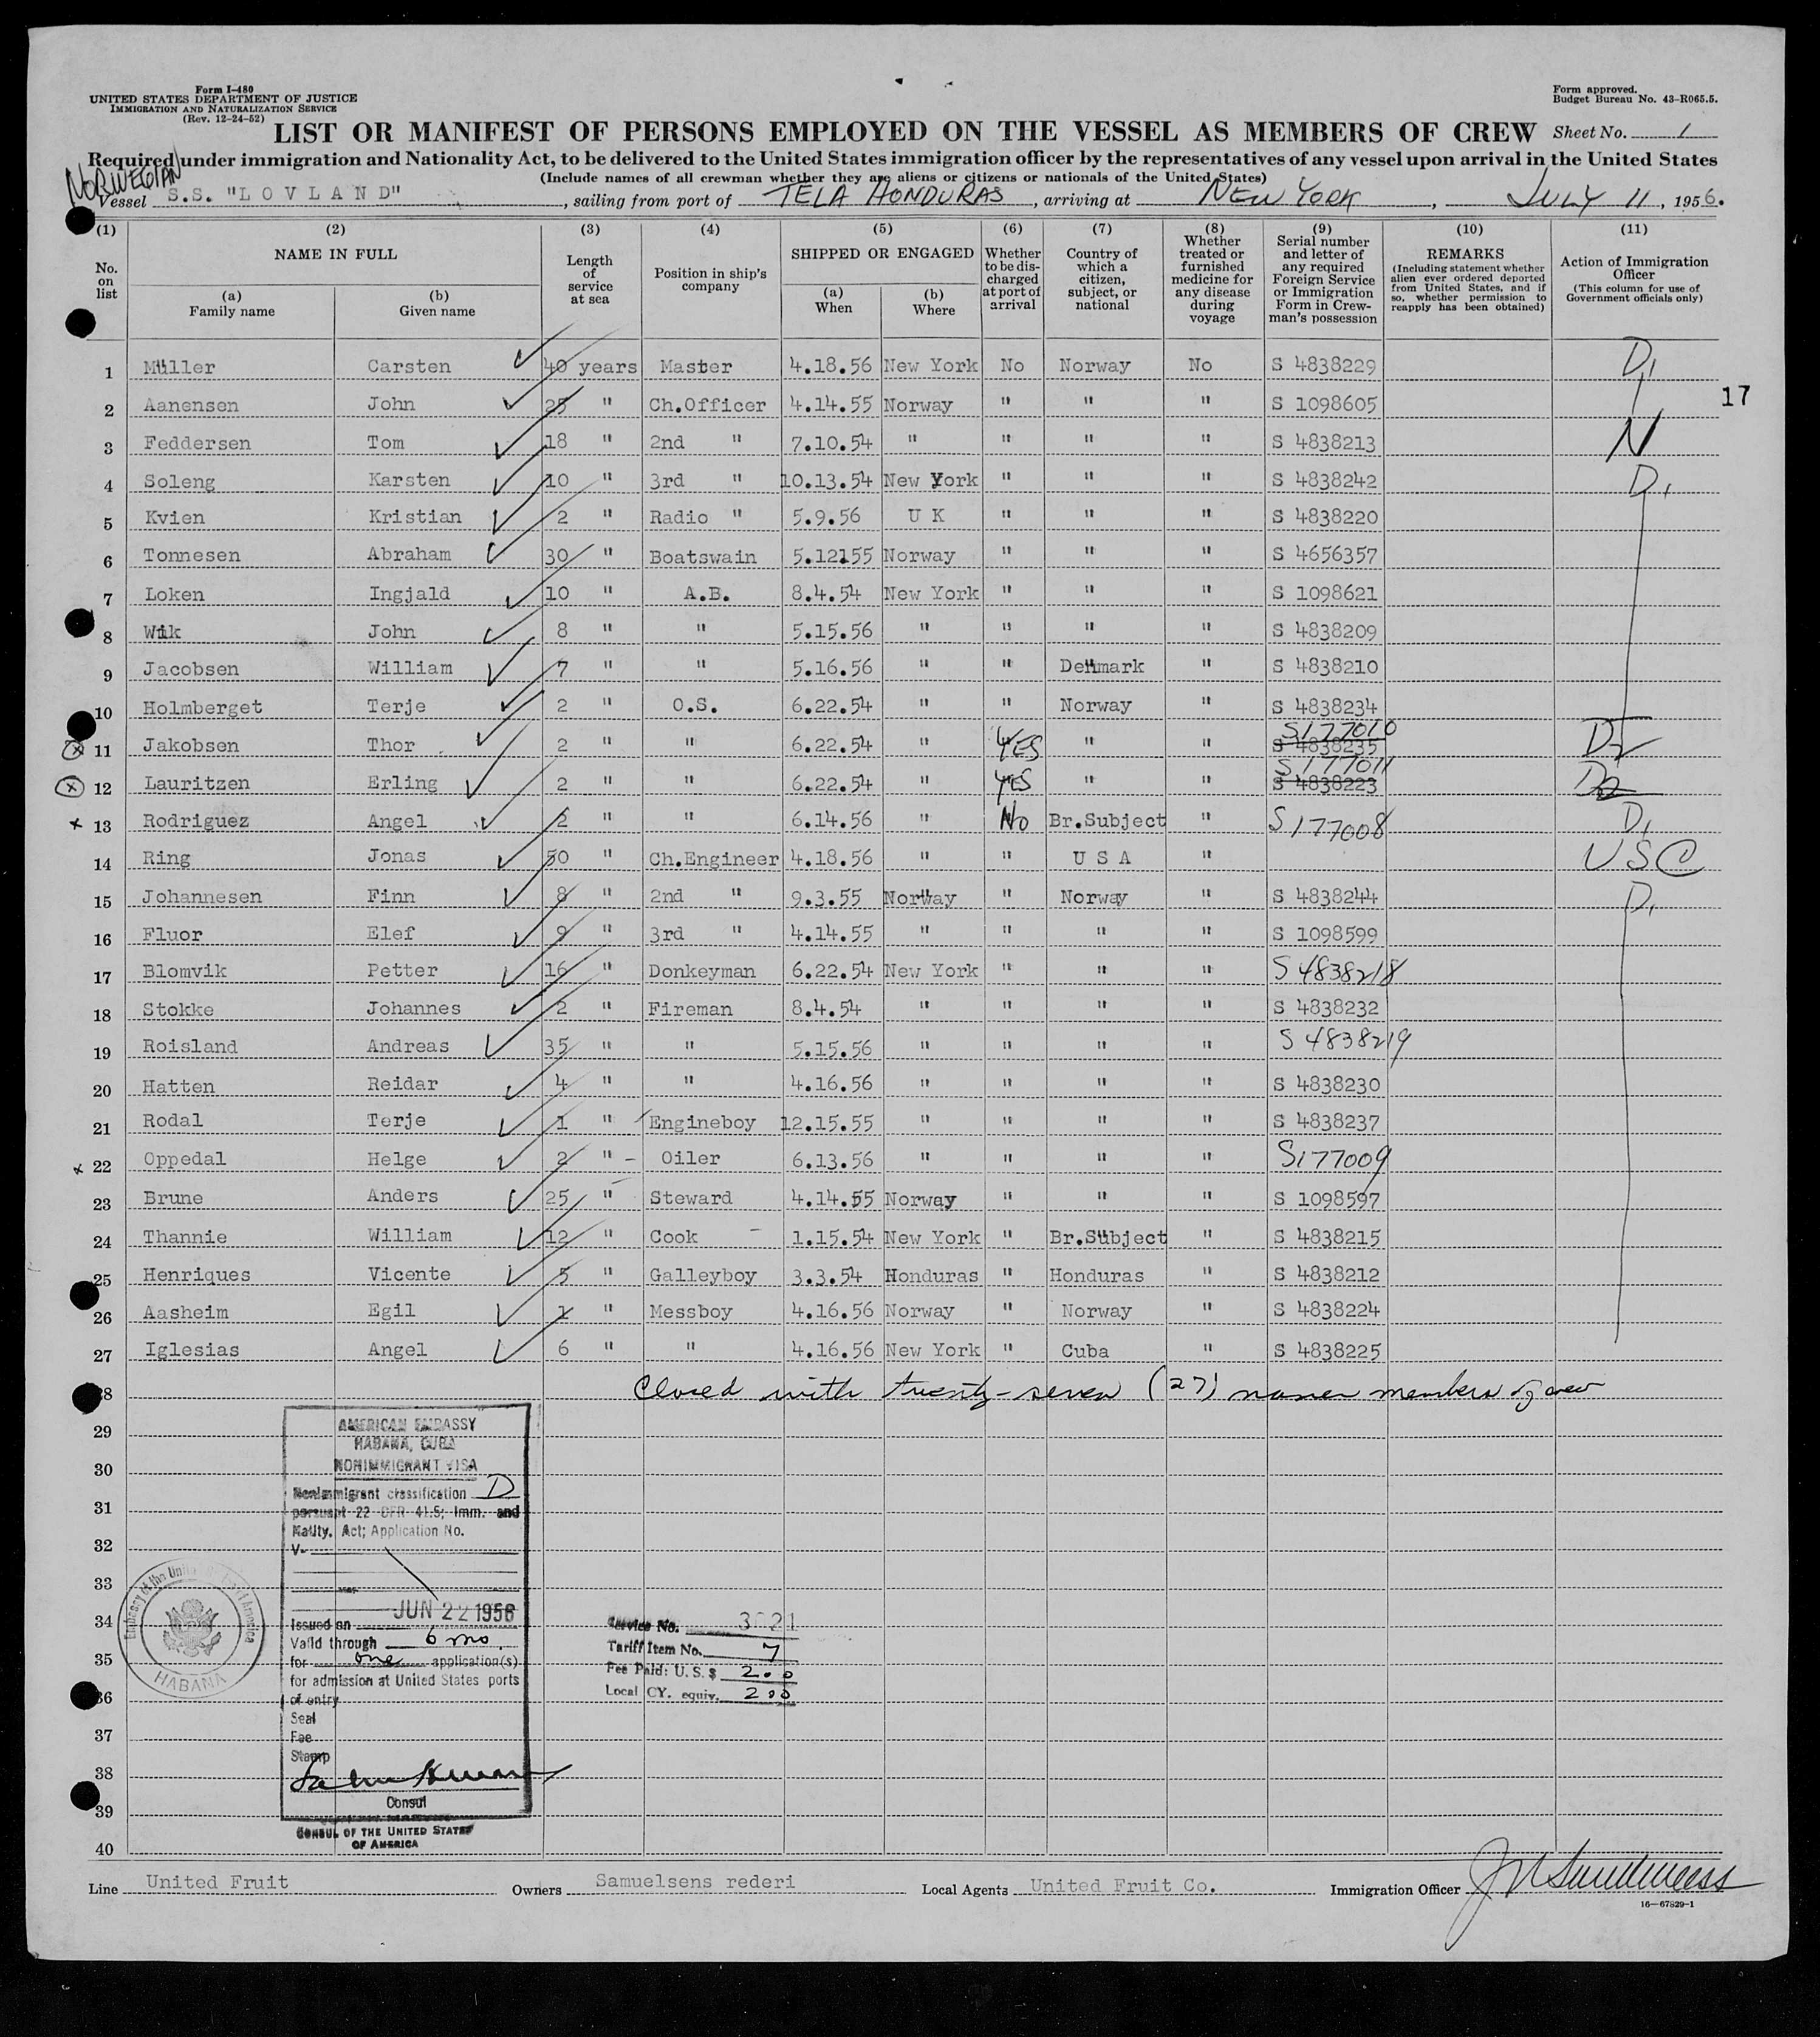 Form I-480
UNITED STATES DEPARTMENT OF JUSTICE
IMMIGRATION AND NATURALIZATION SERVICE
(Rev. 12-24-52)
Form approved.
Budget Bureau No. 43-R065.5.
LIST OR MANIFEST OF PERSONS EMPLOYED ON THE VESSEL AS MEMBERS OF CREW Sheet No. 1
Required under immigration and Nationality Act, to be delivered to the United States immigration officer by the representatives of any vessel upon arrival in the United States
(Include names of all crewman whether they are aliens or citizens or nationals of the United States)
NORWEGIAN
Vessel S.S. "L O V L A N D", sailing from port of TELA HONDURAS, arriving at NEW YORK, JULY 11, 1956.
(1) No. on list
(2) NAME IN FULL (a) Family name (b) Given name
(3) Length of service at sea
(4) Position in ship's company
(5) SHIPPED OR ENGAGED (a) When (b) Where
(6) Whether to be discharged at port of arrival
(7) Country of which a citizen, subject, or national
(8) Whether treated or furnished medicine for any disease during voyage
(9) Serial number and letter of any required Foreign Service or Immigration Form in Crewman's possession
(10) REMARKS (Including statement whether alien ever ordered deported from United States, and if so, whether permission to reapply has been obtained)
(11) Action of Immigration Officer (This column for use of Government officials only)
1 Müller Carsten 40 years Master 4.18.56 New York No Norway No S 4838229 D1
2 Aanensen John 25 " Ch.Officer 4.14.55 Norway " " " S 1098605
17
3 Feddersen Tom 18 " 2nd " 7.10.54 " " " " S 4838213 N
4 Soleng Karsten 10 " 3rd " 10.13.54 New York " " " S 4838242 D1
5 Kvien Kristian 2 " Radio " 5.9.56 U K " " " S 4838220
6 Tonnesen Abraham 30 " Boatswain 5.12155 Norway " " " S 4656357
7 Loken Ingjald 10 " A.B. 8.4.54 New York " " " S 1098621
8 Wik John 8 " " 5.15.56 " " " " S 4838209
9 Jacobsen William 7 " " 5.16.56 " " Denmark " S 4838210
10 Holmberget Terje 2 " O.S. 6.22.54 " " Norway " S 4838234
11 Jakobsen Thor 2 " " 6.22.54 " YES " " S177010 S 4838235 D2
12 Lauritzen Erling 2 " " 6.22.54 " YES " " S177011 S 4838223 D2
13 Rodriguez Angel 2 " " 6.14.56 " No Br.Subject " S177008 D1
14 Ring Jonas 50 " Ch.Engineer 4.18.56 " " U S A " USC
15 Johannesen Finn 8 " 2nd " 9.3.55 Norway " Norway " S 4838244 D1
16 Fluor Elef 9 " 3rd " 4.14.55 " " " " S 1098599
17 Blomvik Petter 16 " Donkeyman 6.22.54 New York " " " S 4838218
18 Stokke Johannes 2 " Fireman 8.4.54 " " " " S 4838232
19 Roisland Andreas 35 " " 5.15.56 " " " " S 4838219
20 Hatten Reidar 4 " " 4.16.56 " " " " S 4838230
21 Rodal Terje 1 " Engineboy 12.15.55 " " " " S 4838237
22 Oppedal Helge 2 " Oiler 6.13.56 " " " " S177009
23 Brune Anders 25 " Steward 4.14.55 Norway " " " S 1098597
24 Thannie William 12 " Cook 1.15.54 New York " Br.Subject " S 4838215
25 Henriques Vicente 5 " Galleyboy 3.3.54 Honduras " Honduras " S 4838212
26 Aasheim Egil 1 " Messboy 4.16.56 Norway " Norway " S 4838224
27 Iglesias Angel 6 " " 4.16.56 New York " Cuba " S 4838225
28 Closed with twenty-seven (27) names members of crew
29
30
31
32
33
34
35
36
37
38
39
40
AMERICAN EMBASSY
HABANA, CUBA
NONIMMIGRANT VISA
Nonimmigrant classification D
pursuant 22 CFR 41.5; Imm. and
Natlty. Act; Application No.
V-
Issued on JUN 22 1956
Valid through 6 mo.
for one application(s)
for admission at United States ports
of entry
Seal
Fee
Stamp
Consul
CONSUL OF THE UNITED STATES
OF AMERICA
Embassy of the United States of America
HABANA
Service No. 3021
Tariff Item No. 7
Fee Paid: U.S. $ 2.00
Local CY. equiv. 2.00
Line United Fruit Owners Samuelsens rederi Local Agents United Fruit Co. Immigration Officer
16—67829-1